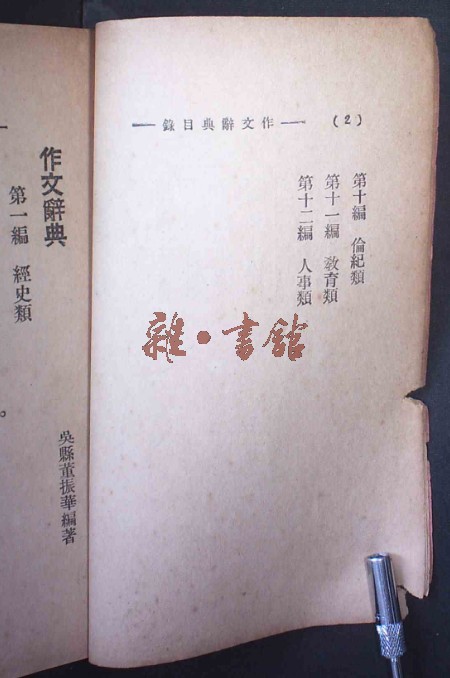 (2) 作文辭典目錄
第十編 倫紀類
第十一編 教育類
第十二編 人事類
雜·書館
作文辭典
第一編 經史類
吳縣董振華編著